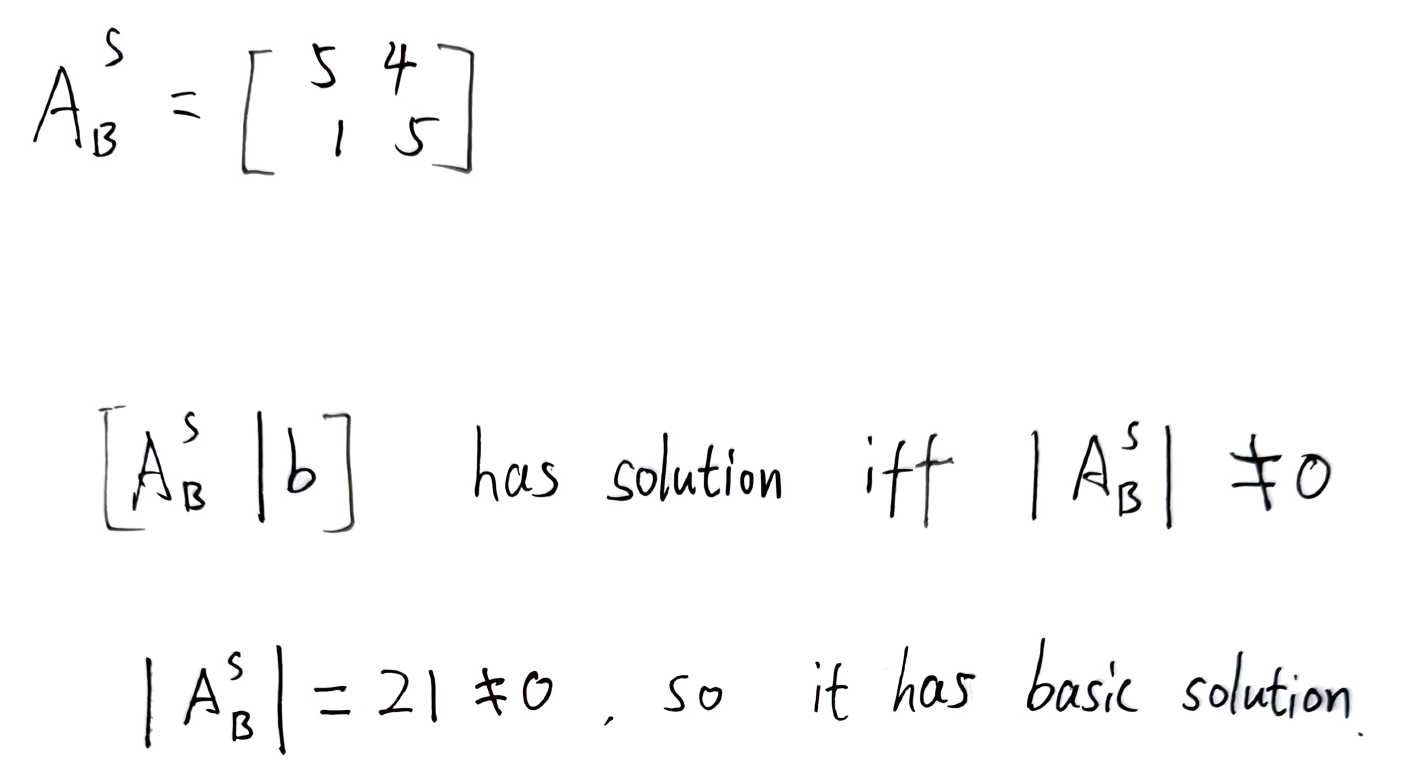 A_B^S = [ 5 4
1 5 ]
[ A_B^S | b ] has solution iff | A_B^S | ≠ 0
| A_B^S | = 21 ≠ 0 , so it has basic solution.